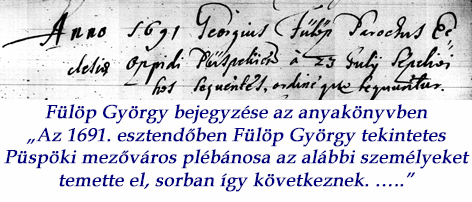 Anno 1691 Georgius Fülöp Parochus Ec
clesiæ Oppidi Püspekiens à 23 July Sepelivi
hos sequentes, ordine quo sequuntur.
Fülöp György bejegyzése az anyakönyvben
„Az 1691. esztendőben Fülöp György tekintetes
Püspöki mezőváros plébánosa az alábbi személyeket
temette el, sorban így következnek. …..”